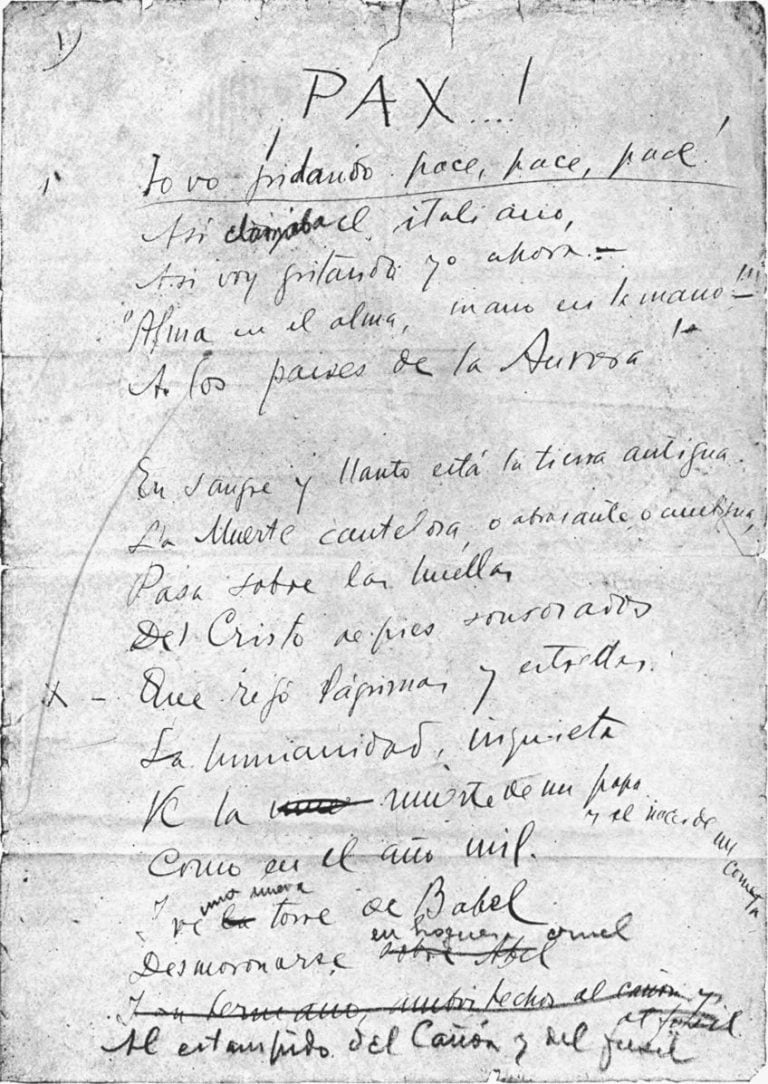 1)
PAX...!
Io vo gridando pace, pace, pace!
Así clamaba el italiano,
Así voy gritando yo ahora –
"Alma en el alma, mano en la mano" –
A los países de la Aurora!...
En sangre y llanto está la tierra antigua.
La Muerte cautelosa, o abrasante o ambigua,
Pasa sobre las huellas
Del Cristo de pies sonrosados
X – Que regó lágrimas y estrellas.
La humanidad, inquieta
Ve la muerte de un papa
y el nacer de un cometa
Como en el año mil.
una nueva
Y ve la torre de Babel
en hoguera cruel
Desmoronarse sobre Abel
Y su hermano, ambos hechos al cañón y
al fusil.
Al estampido del Cañón y del fusil